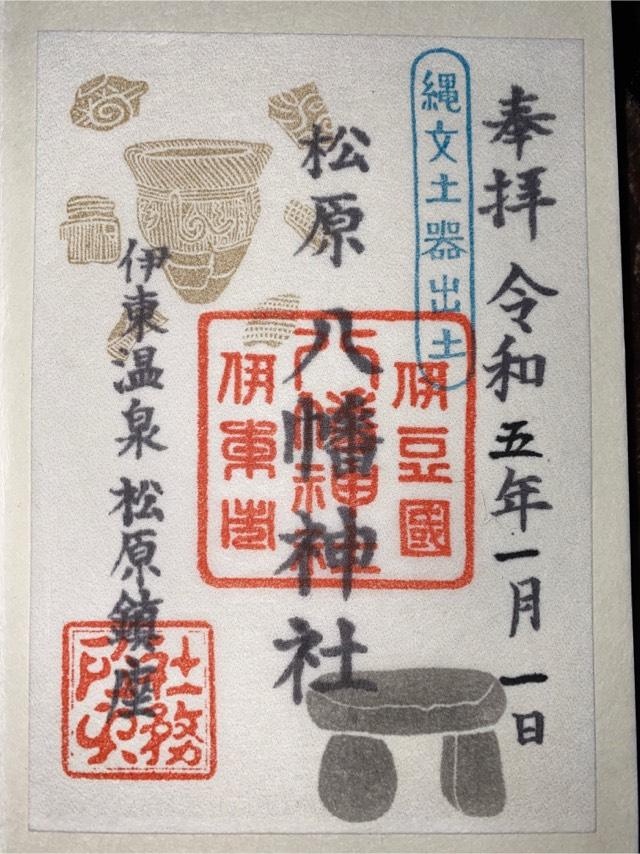 奉拝 令和五年一月一日
縄文土器出土
松原 八幡神社
伊豆國
八幡神社
伊東市
伊東温泉 松原鎮座
社務
所